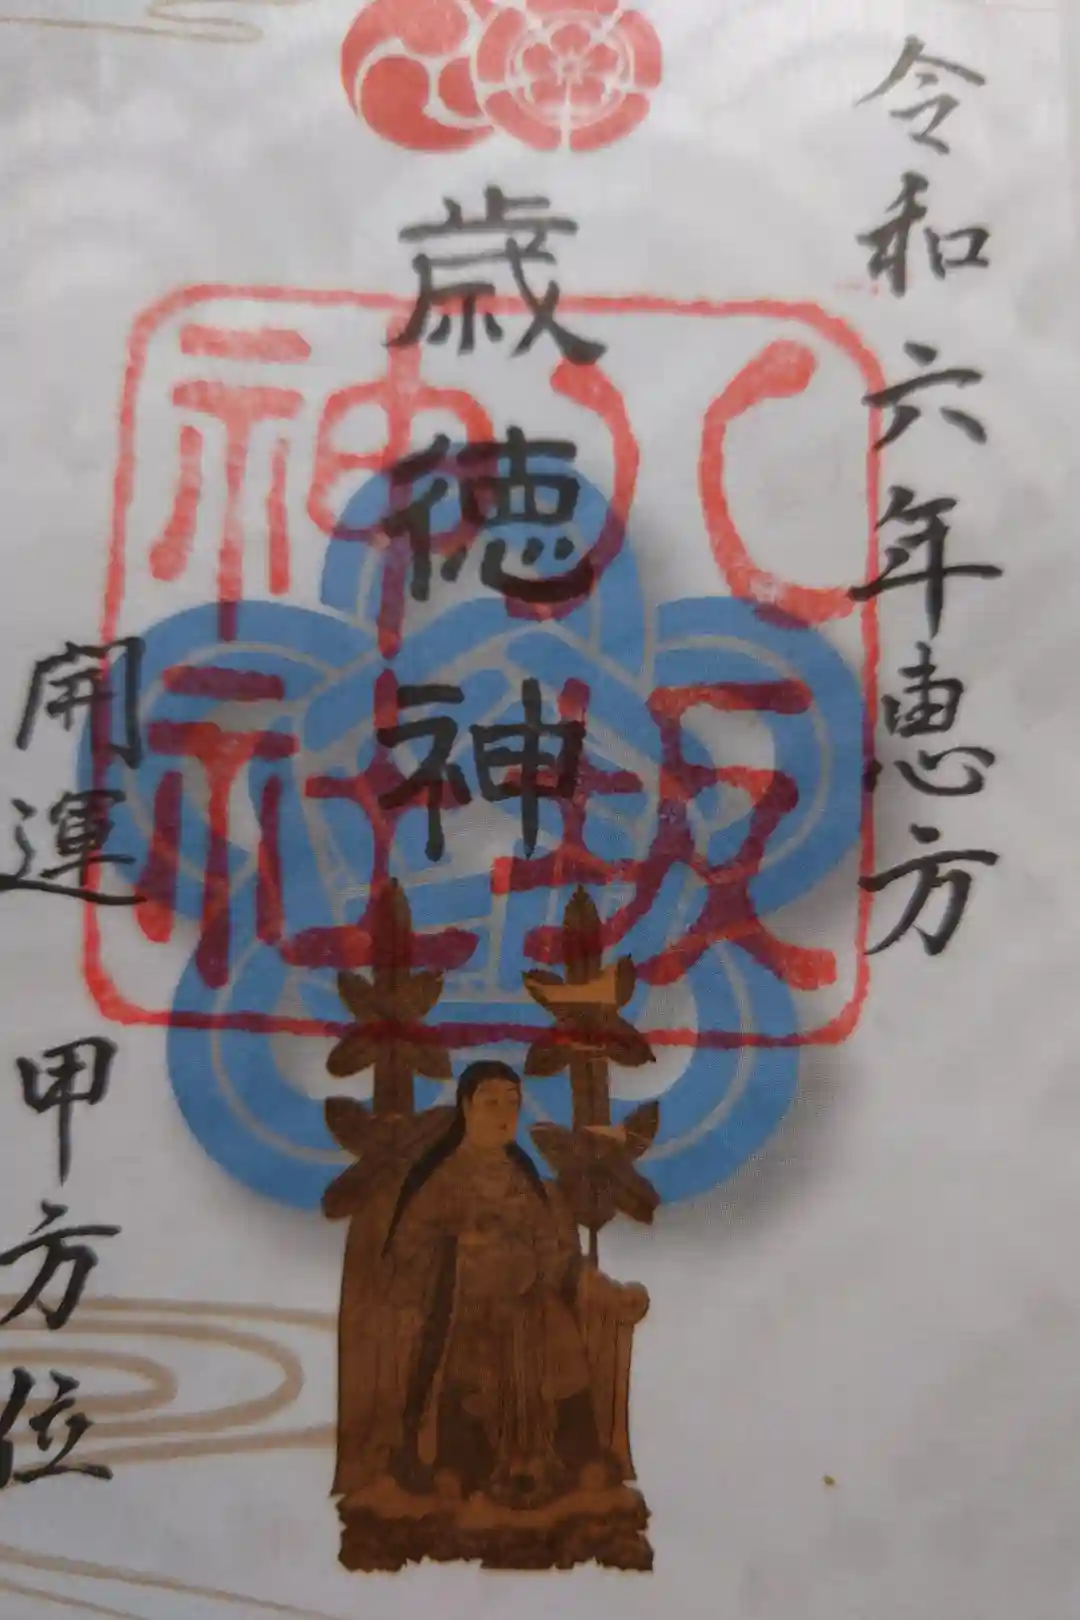 令和六年恵方
歳徳神
開運 甲方位
八坂
神社